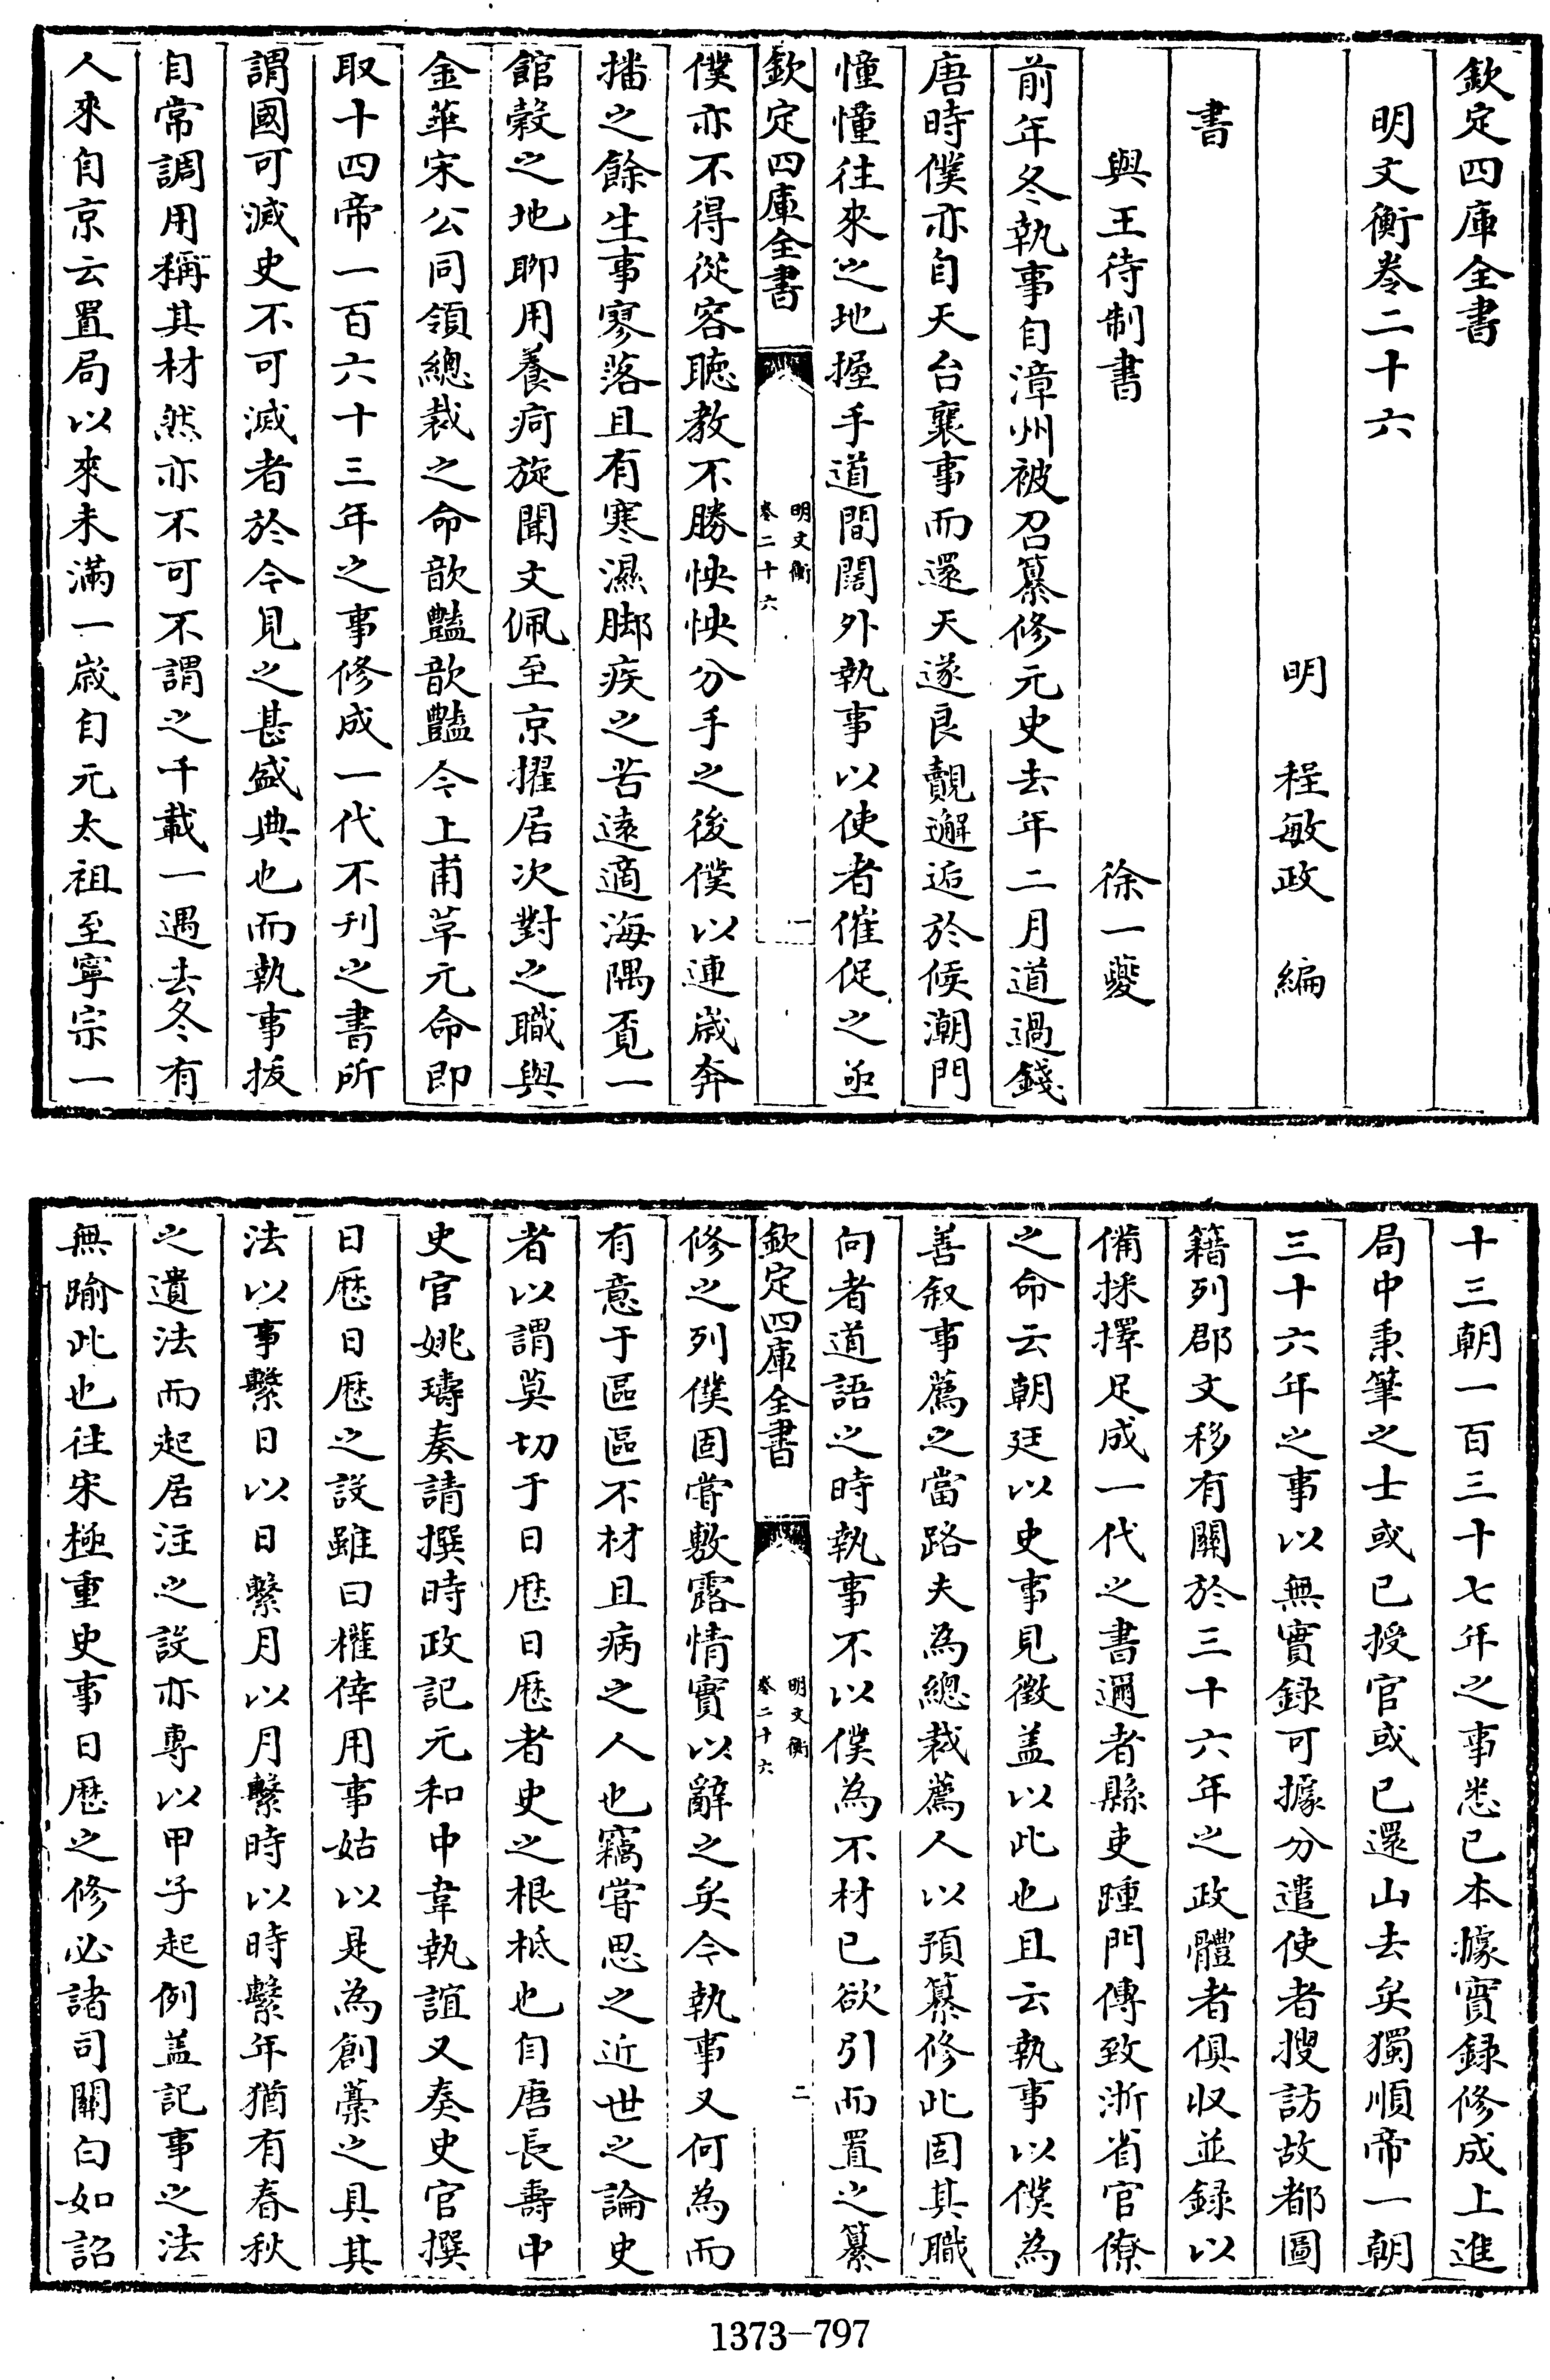 欽定四庫全書
明文衡卷二十六
明　程敏政　編
書
與王待制書　徐一夔
前年冬執事自漳州被召纂修元史去年二月道過錢
唐時僕亦自天台襄事而還天遂良覿邂逅於候潮門
憧憧往來之地握手道間闊外執事以使者催促之亟
欽定四庫全書
明文衡
卷二十六
一
僕亦不得從容聽教不勝怏怏分手之後僕以連歲奔
播之餘生事寥落且有寒濕脚疾之苦遠適海隅覓一
館穀之地聊用養疴旋聞文佩至京擢居次對之職與
金華宋公同領總裁之命歆豔歆豔今上甫草元命即
取十四帝一百六十三年之事修成一代不刋之書所
謂國可滅史不可滅者於今見之甚盛典也而執事拔
自常調用稱其材然亦不可不謂之千載一遇去冬有
人來自京云置局以來未滿一歲自元太祖至寧宗一
十三朝一百三十七年之事悉已本據實録修成上進
局中秉筆之士或已授官或已還山去矣獨順帝一朝
三十六年之事以無實録可據分遣使者搜訪故都圖
籍列郡文移有關於三十六年之政體者俱収並録以
備採擇足成一代之書邇者縣吏踵門傳致浙省官僚
之命云朝廷以史事見徵盖以此也且云執事以僕為
善叙事薦之當路夫為總裁薦人以預纂修此固其職
向者道語之時執事不以僕為不材已欲引而置之纂
欽定四庫全書
明文衡
卷二十六
二
修之列僕固嘗敷露情實以辭之矣今執事又何為而
有意于區區不材且病之人也竊嘗思之近世之論史
者以謂莫切于日厯日厯者史之根柢也自唐長壽中
史官姚璹奏請撰時政記元和中韋執誼又奏史官撰
日厯日厯之設雖曰權倖用事姑以是為創藁之具其
法以事繫日以日繫月以月繫時以時繫年猶有春秋
之遺法而起居注之設亦專以甲子起例盖記事之法
無踰此也往宋極重史事日厯之修必諸司關白如詔
1373—797